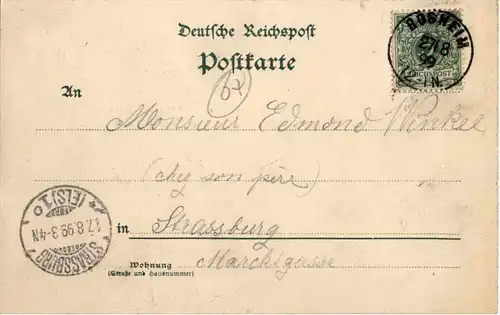 Deutsche Reichspost
Postkarte
ROSHEIM
27/8
99
1-2N.
REICHSPOST
67
An
Monsieur Edmond Winkel
(chez son père)
in Strassburg
Marcksgasse
Wohnung
(Straße und Hausnummer)
STRASSBURG
17.8.99.3-4N
(ELS) 1